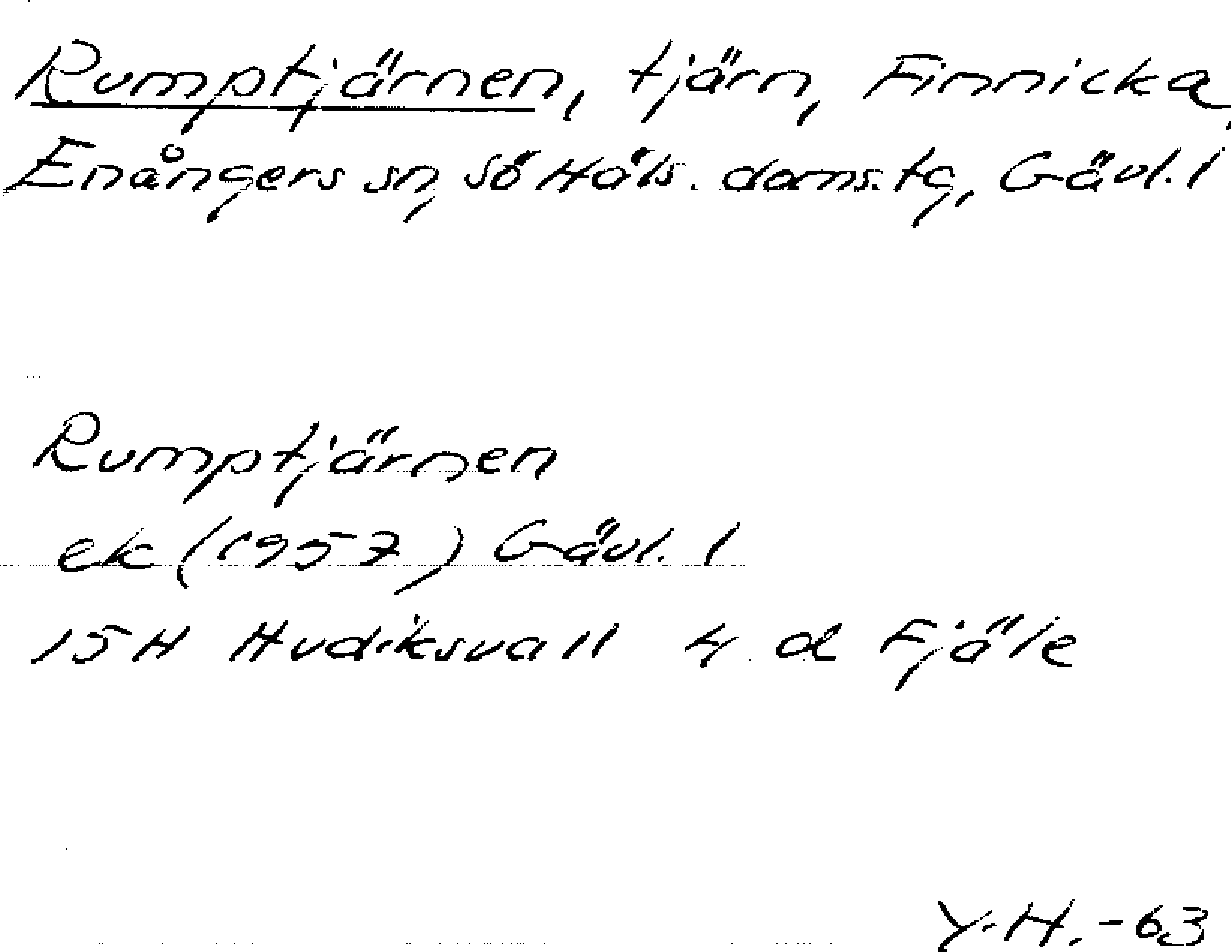 Rumptjärnen, tjärn, Finnicka,
Enångers sn, Sö Häls. doms.tg, Gävl. l
Rumptjärnen
ek (1957) Gävl. l
15H Hudiksvall 4 d Fjäle
Y.H. -63